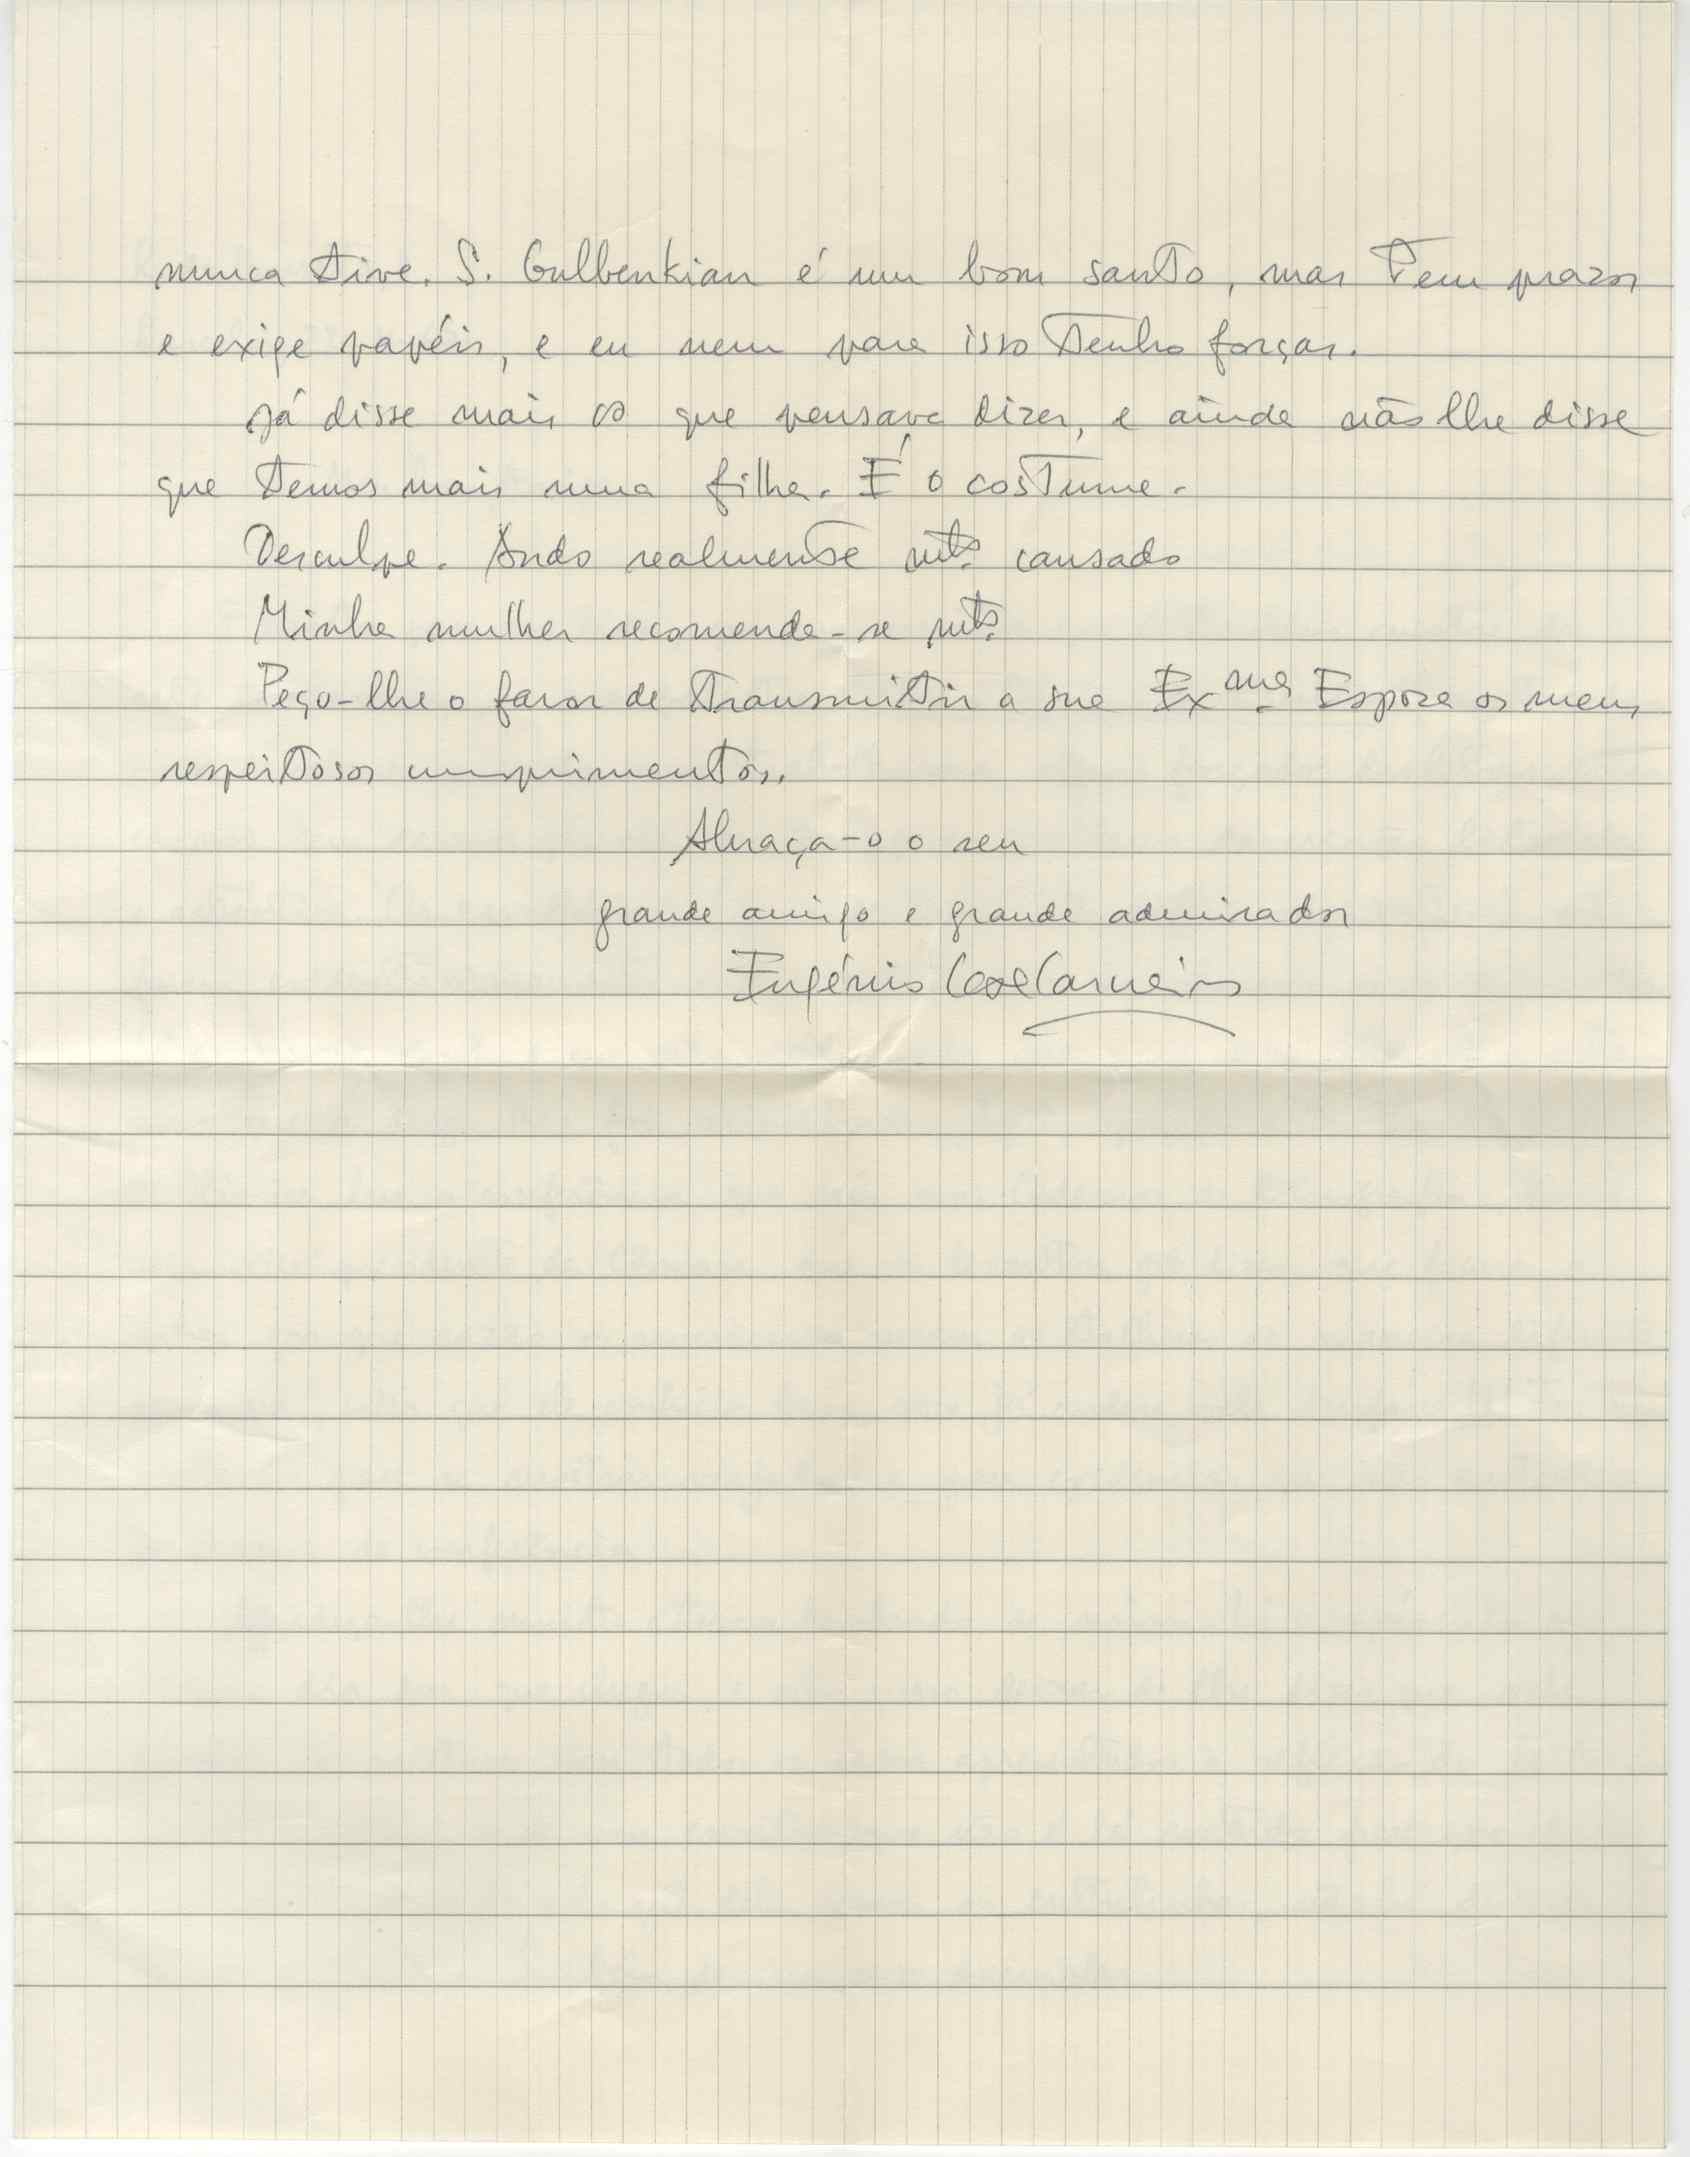 nunca tive. S. Gulbenkian é um bom santo, mas tem prazos
e exige papéis, e eu nem para isso tenho forças.
Já disse mais do que pensava dizer, e ainda não lhe disse
que temos mais uma filha. É o costume.
Desculpe. Ando realmente mtº. cansado
Minha mulher recomenda-se mtº.
Peço-lhe o favor de transmitir a sua Exma. Esposa os meus
respeitosos cumprimentos.
Abraça-o o seu
grande amigo e grande admirador
Eugénio